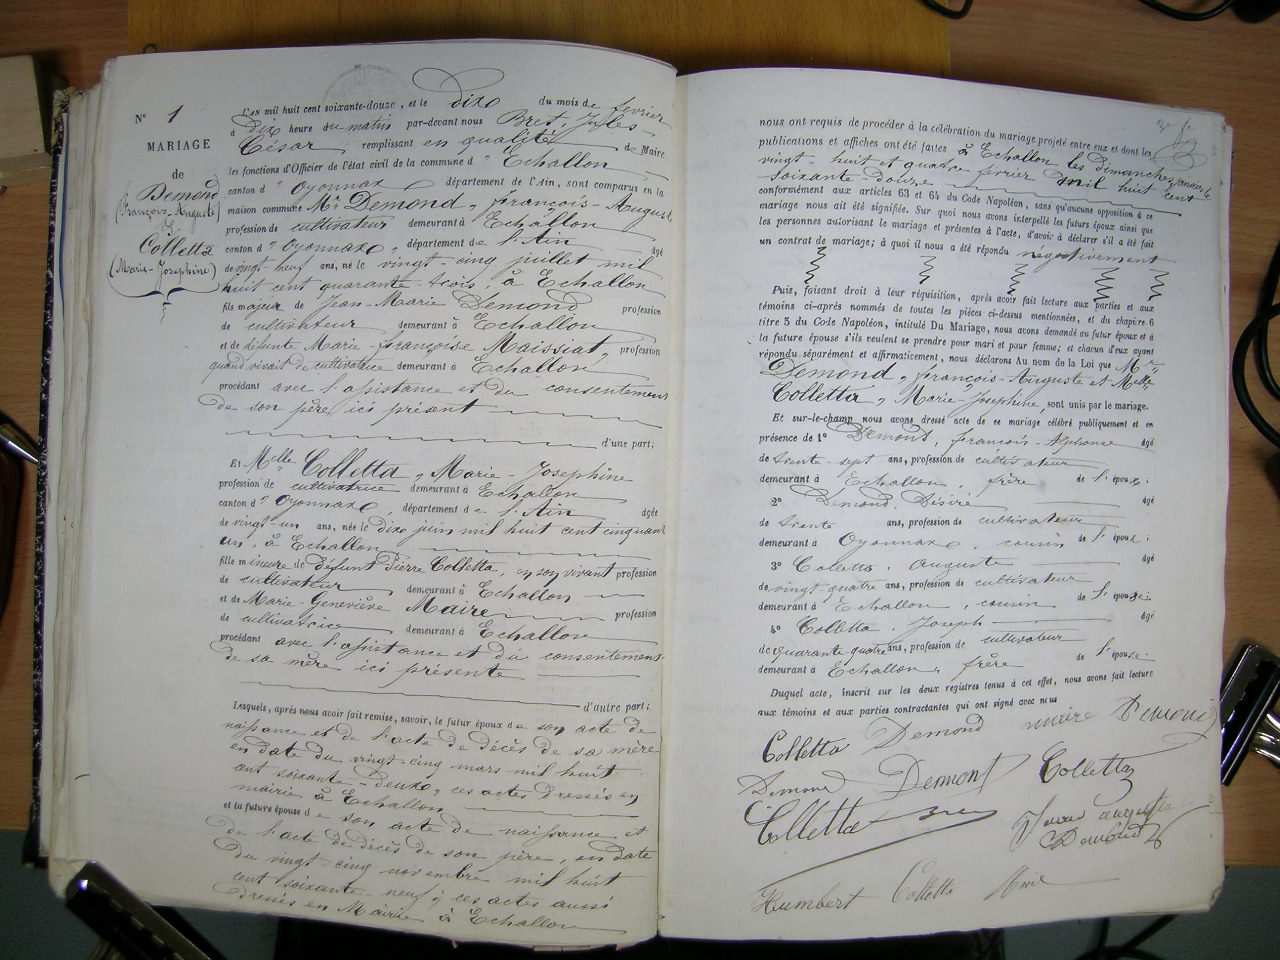 N° 1
MARIAGE
de
Demond
(François-Auguste)
&
Colletta
(Marie-Josephine)
L'AN mil huit cent soixante-douze, et le dixe du mois de fevrier
à dix heure du matin par-devant nous Bret, Jules
César remplissant en qualité de Maire
les fonctions d'Officier de l'état civil de la commune d' Echallon
canton d' Oyonnax, département de l'Ain, sont comparus en la
maison commune Mr Demond, françois-Auguste
profession de cultivateur demeurant à Echallon
canton d' Oyonnaxe, département de l'Ain âgé
de vingt-neuf ans, né le vingt-cinq juillet mil
huit cent quarante-trois, à Echallon
fils majeur de Jean-Marie Demond profession
de cultivateur demeurant à Echallon
et de défunte Marie-françoise Maissiat, profession
quand vivait de cultivatrice demeurant à Echallon
procédant avec l'assistance et du consentement
de son père ici présent
d'une part;
Et Melle Colletta, Marie-Josephine
profession de cultivatrice demeurant à Echallon
canton d' Oyonnaxe, département de l'Ain âgée
de vingt-un ans, née le dixe juin mil huit cent cinquant
un, à Echallon
fille mineure de défunt Pierre Colletta, en son vivant profession
de cultivateur demeurant à Echallon
et de Marie-Geneviève Maire profession
de cultivatrice demeurant à Echallon
procédant avec l'assistance et du consentement
de sa mère ici présente
d'autre part;
Lesquels, après nous avoir fait remise, savoir, le futur époux de son acte de
naissance et de l'acte de décès de sa mère
en date du vingt-cinq mars mil huit
cent soixante-deuxe, ces actes dressés en
mairie à Echallon
et la future épouse de son acte de naissance et
de l'acte de décès de son père, en date
du vingt-cinq novembre mil huit
cent soixante-neuf; ces actes aussi
dressés en Mairie à Echallon
nous ont requis de procéder à la célébration du mariage projeté entre eux et dont les
publications et affiches ont été faites à Echallon les dimanches janvier
vingt-huit et quatre fevrier mil huit cent
soixante-douze
conformément aux articles 63 et 64 du Code Napoléon, sans qu'aucune opposition à ce
mariage nous ait été signifiée. Sur quoi nous avons interpellé les futurs époux ainsi que
les personnes autorisant le mariage et présentes à l'acte, d'avoir à déclarer s'il a été fait
un contrat de mariage; à quoi il nous a été répondu négativement
Puis, faisant droit à leur réquisition, après avoir fait lecture aux parties et aux
témoins ci-après nommés de toutes les pièces ci-dessus mentionnées, et du chapitre 6
titre 5 du Code Napoléon, intitulé Du Mariage, nous avons demandé au futur époux et à
la future épouse s'ils veulent se prendre pour mari et pour femme; et chacun d'eux ayant
répondu séparément et affirmativement, nous déclarons Au nom de la Loi que Mr
Demond, françois-Auguste et Melle
Colletta, Marie-Josephine, sont unis par le mariage.
Et sur-le-champ nous avons dressé acte de ce mariage célébré publiquement et en
présence de 1° Demond, françois-Alphonse âgé
de trente-sept ans, profession de cultivateur
demeurant à Echallon, frère de l'époux;
2° Demond Désiré âgé
de trente ans, profession de cultivateur
demeurant à Oyonnaxe, cousin de l'époux;
3° Coletta Auguste âgé
de vingt-quatre ans, profession de cultivateur
demeurant à Echallon, cousin de l'épouse;
4° Colletta Joseph âgé
de quarante-quatre ans, profession de cultivateur
demeurant à Echallon, frère de l'épouse
Duquel acte, inscrit sur les deux registres tenus à cet effet, nous avons fait lecture
aux témoins et aux parties contractantes qui ont signé avec nous
Colletta Demond maire Demond
Demond Demont Colletta
Colletta auguste
Demond
Humbert Colletta